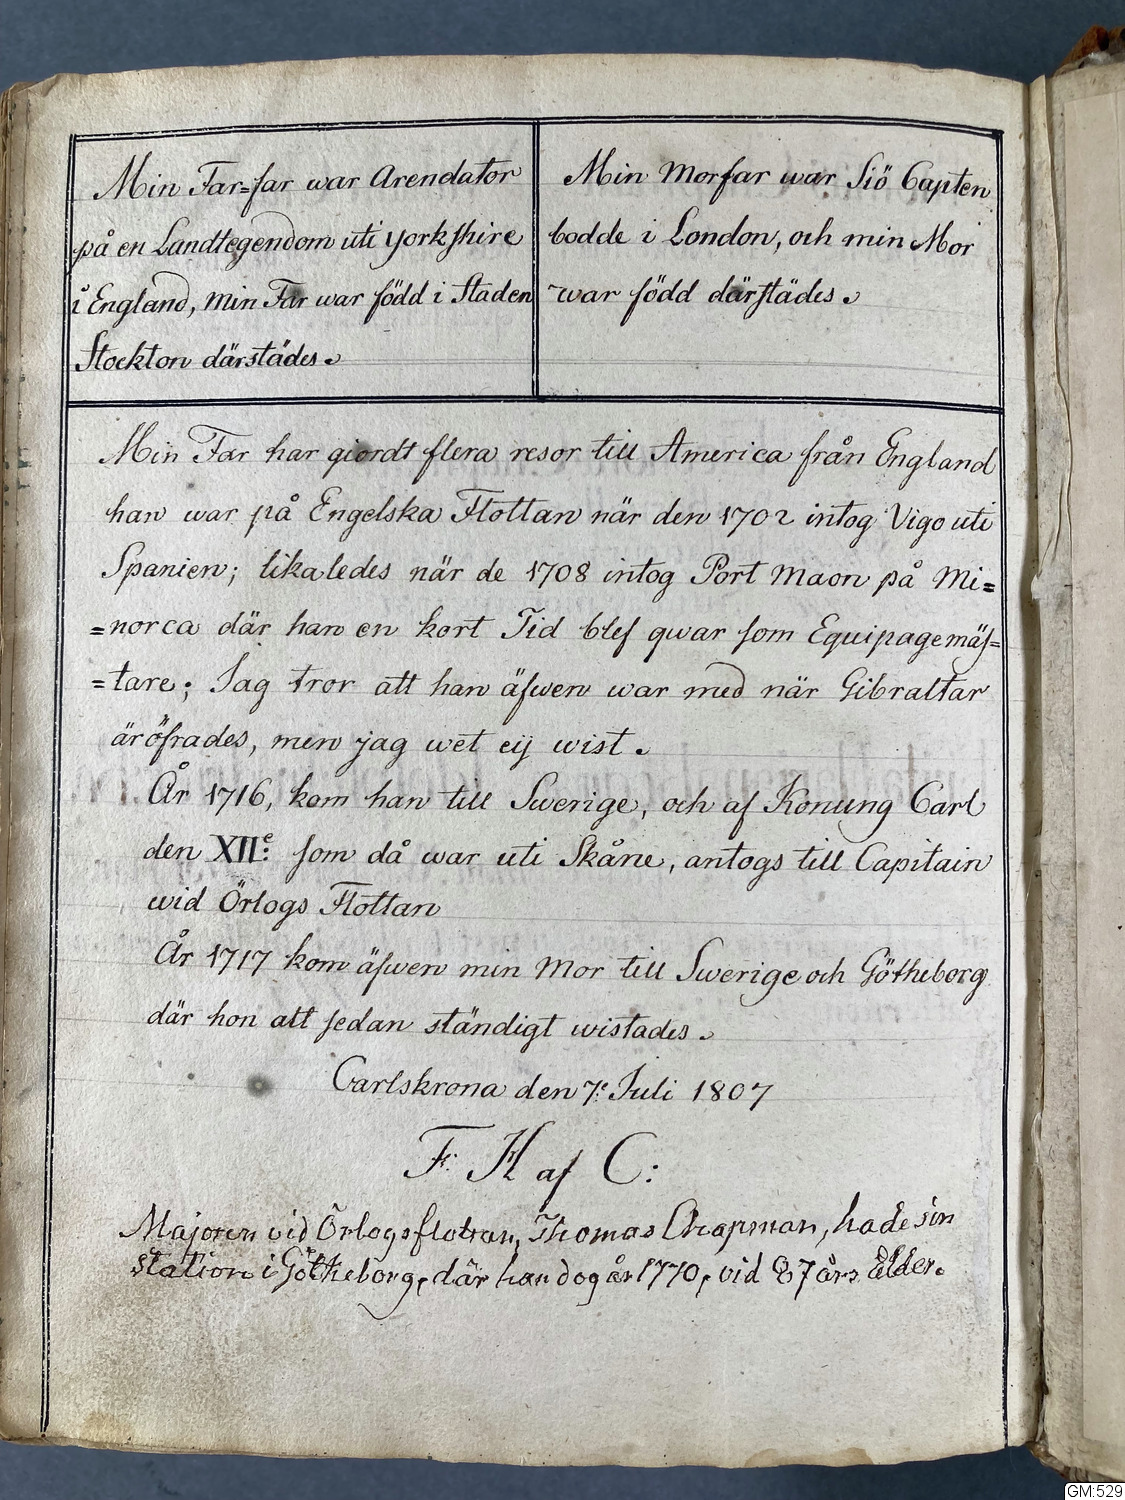 Min Far=far war Arendator
på en Landtegendom uti yorkshire
i England, min Far war född i Staden
Stockton därstädes.
Min Morfar war Siö Capten
bodde i London, och min Mor
war född därstädes.
Min Far har giordt flera resor till America från England
han war på Engelska Flottan när den 1702 intog Vigo uti
Spanien; likaledes när de 1708 intog Port Maon på Mi=
=norca där han en kort Tid blef qwar som Equipagemäs=
=tare; Jag tror att han äfwen war med när Gibraltar
äröfrades, men jag wet eij wist.
År 1716, kom han till Swerige, och af Konung Carl
den XIIe: som då war uti Skåne, antogs till Capitain
wid Örlogs Flottan
År 1717 kom äfwen min Mor till Swerige och Götheborg
där hon att sedan ständigt wistades.
Carlskrona den 7e: Juli 1807
F: H af C:
Majoren vid Örlogsflottan, Thomas Chapman, hade sin
station i Götheborg, där han dog år 1770, vid 87 års ålder.
GM:529